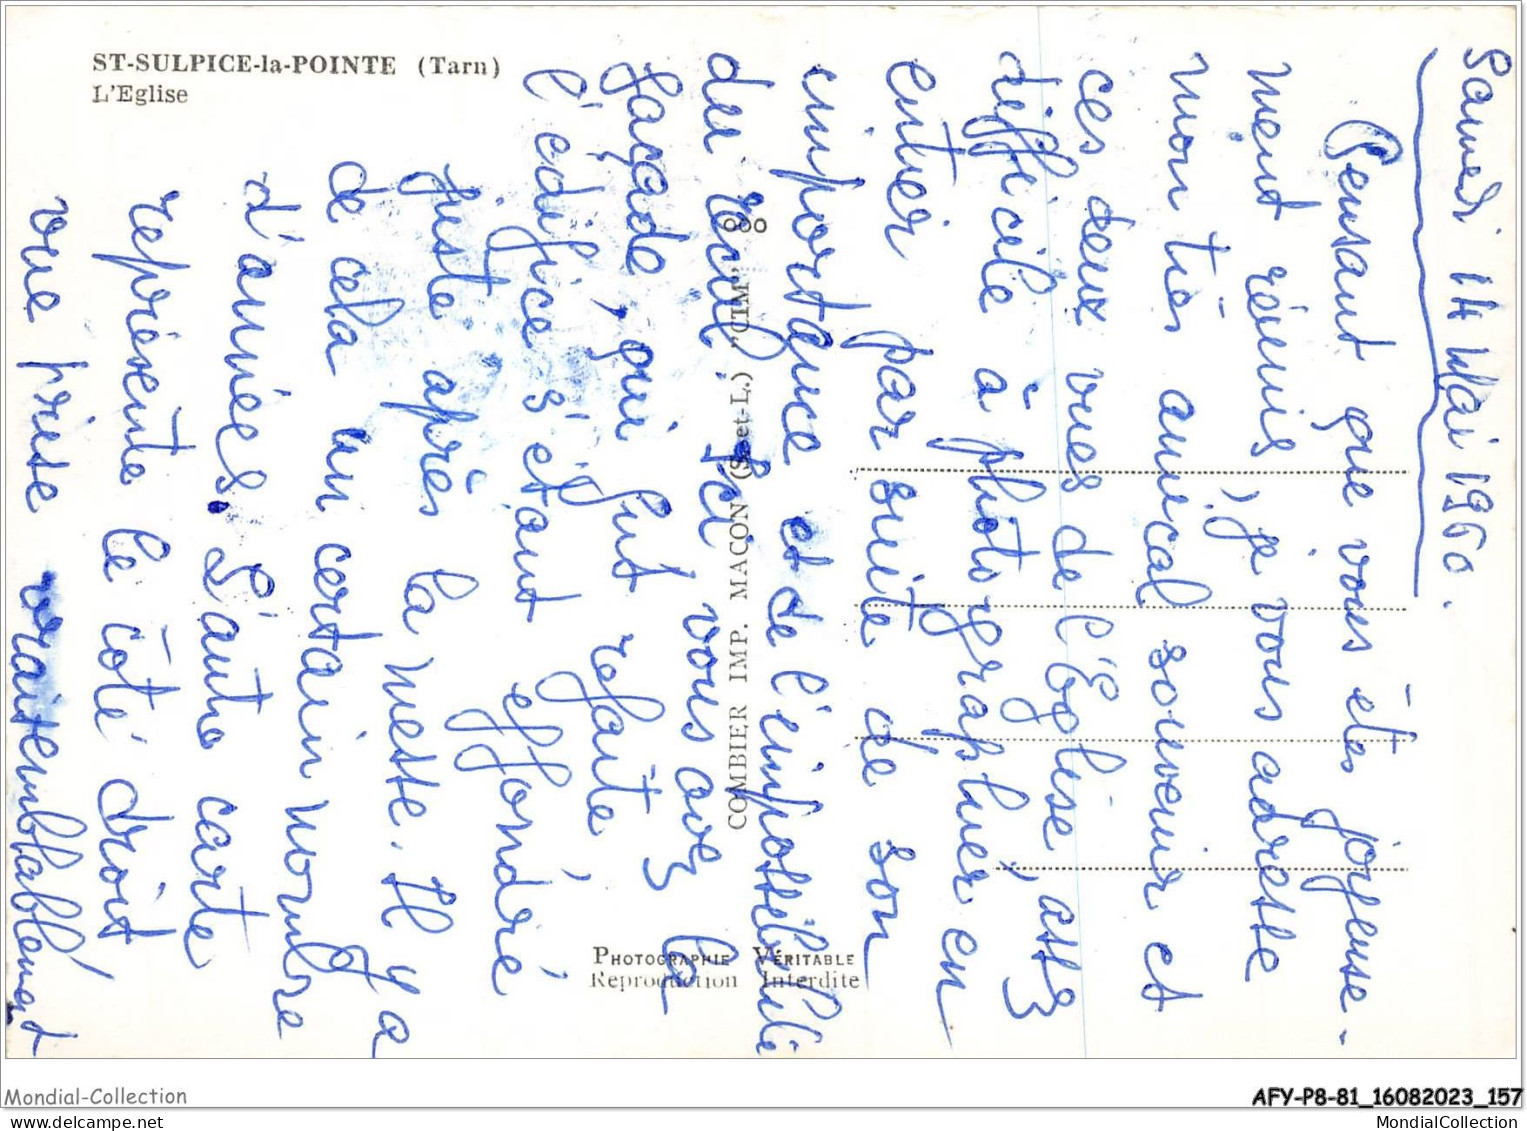 ST-SULPICE-la-POINTE (Tarn)
L'Eglise
Samedi 14 Mai 1960.
Pensant que vous êtes joyeuse-
ment réunis, je vous adresse
mon très amical souvenir et
ces deux vues de l'Eglise, assez
difficile à photographier en
entier par suite de son
importance et de l'impossibilité
du recul. Ici vous avez la
façade, qui fut refaite,
l'édifice s'étant effondré
juste après la messe. Il y a
de cela un certain nombre
d'années. L'autre carte
représente le côté droit
vue prise vraisemblablement
COMBIER IMP. MACON (S.-et-L.) "CIM"
PHOTOGRAPHIE VÉRITABLE
Reproduction Interdite
Mondial-Collection
AFY-P8-81_16082023_157
www.delcampe.net
MondialCollection